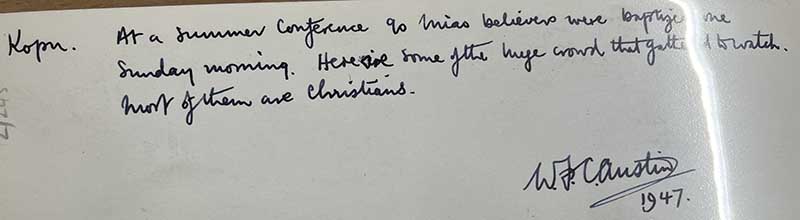 Kopu. At a summer Conference 90 Miao believers were baptized one
Sunday morning. Here are some of the huge crowd that gathered to watch.
Most of them are Christians.
W.F.C. Austin
1947.